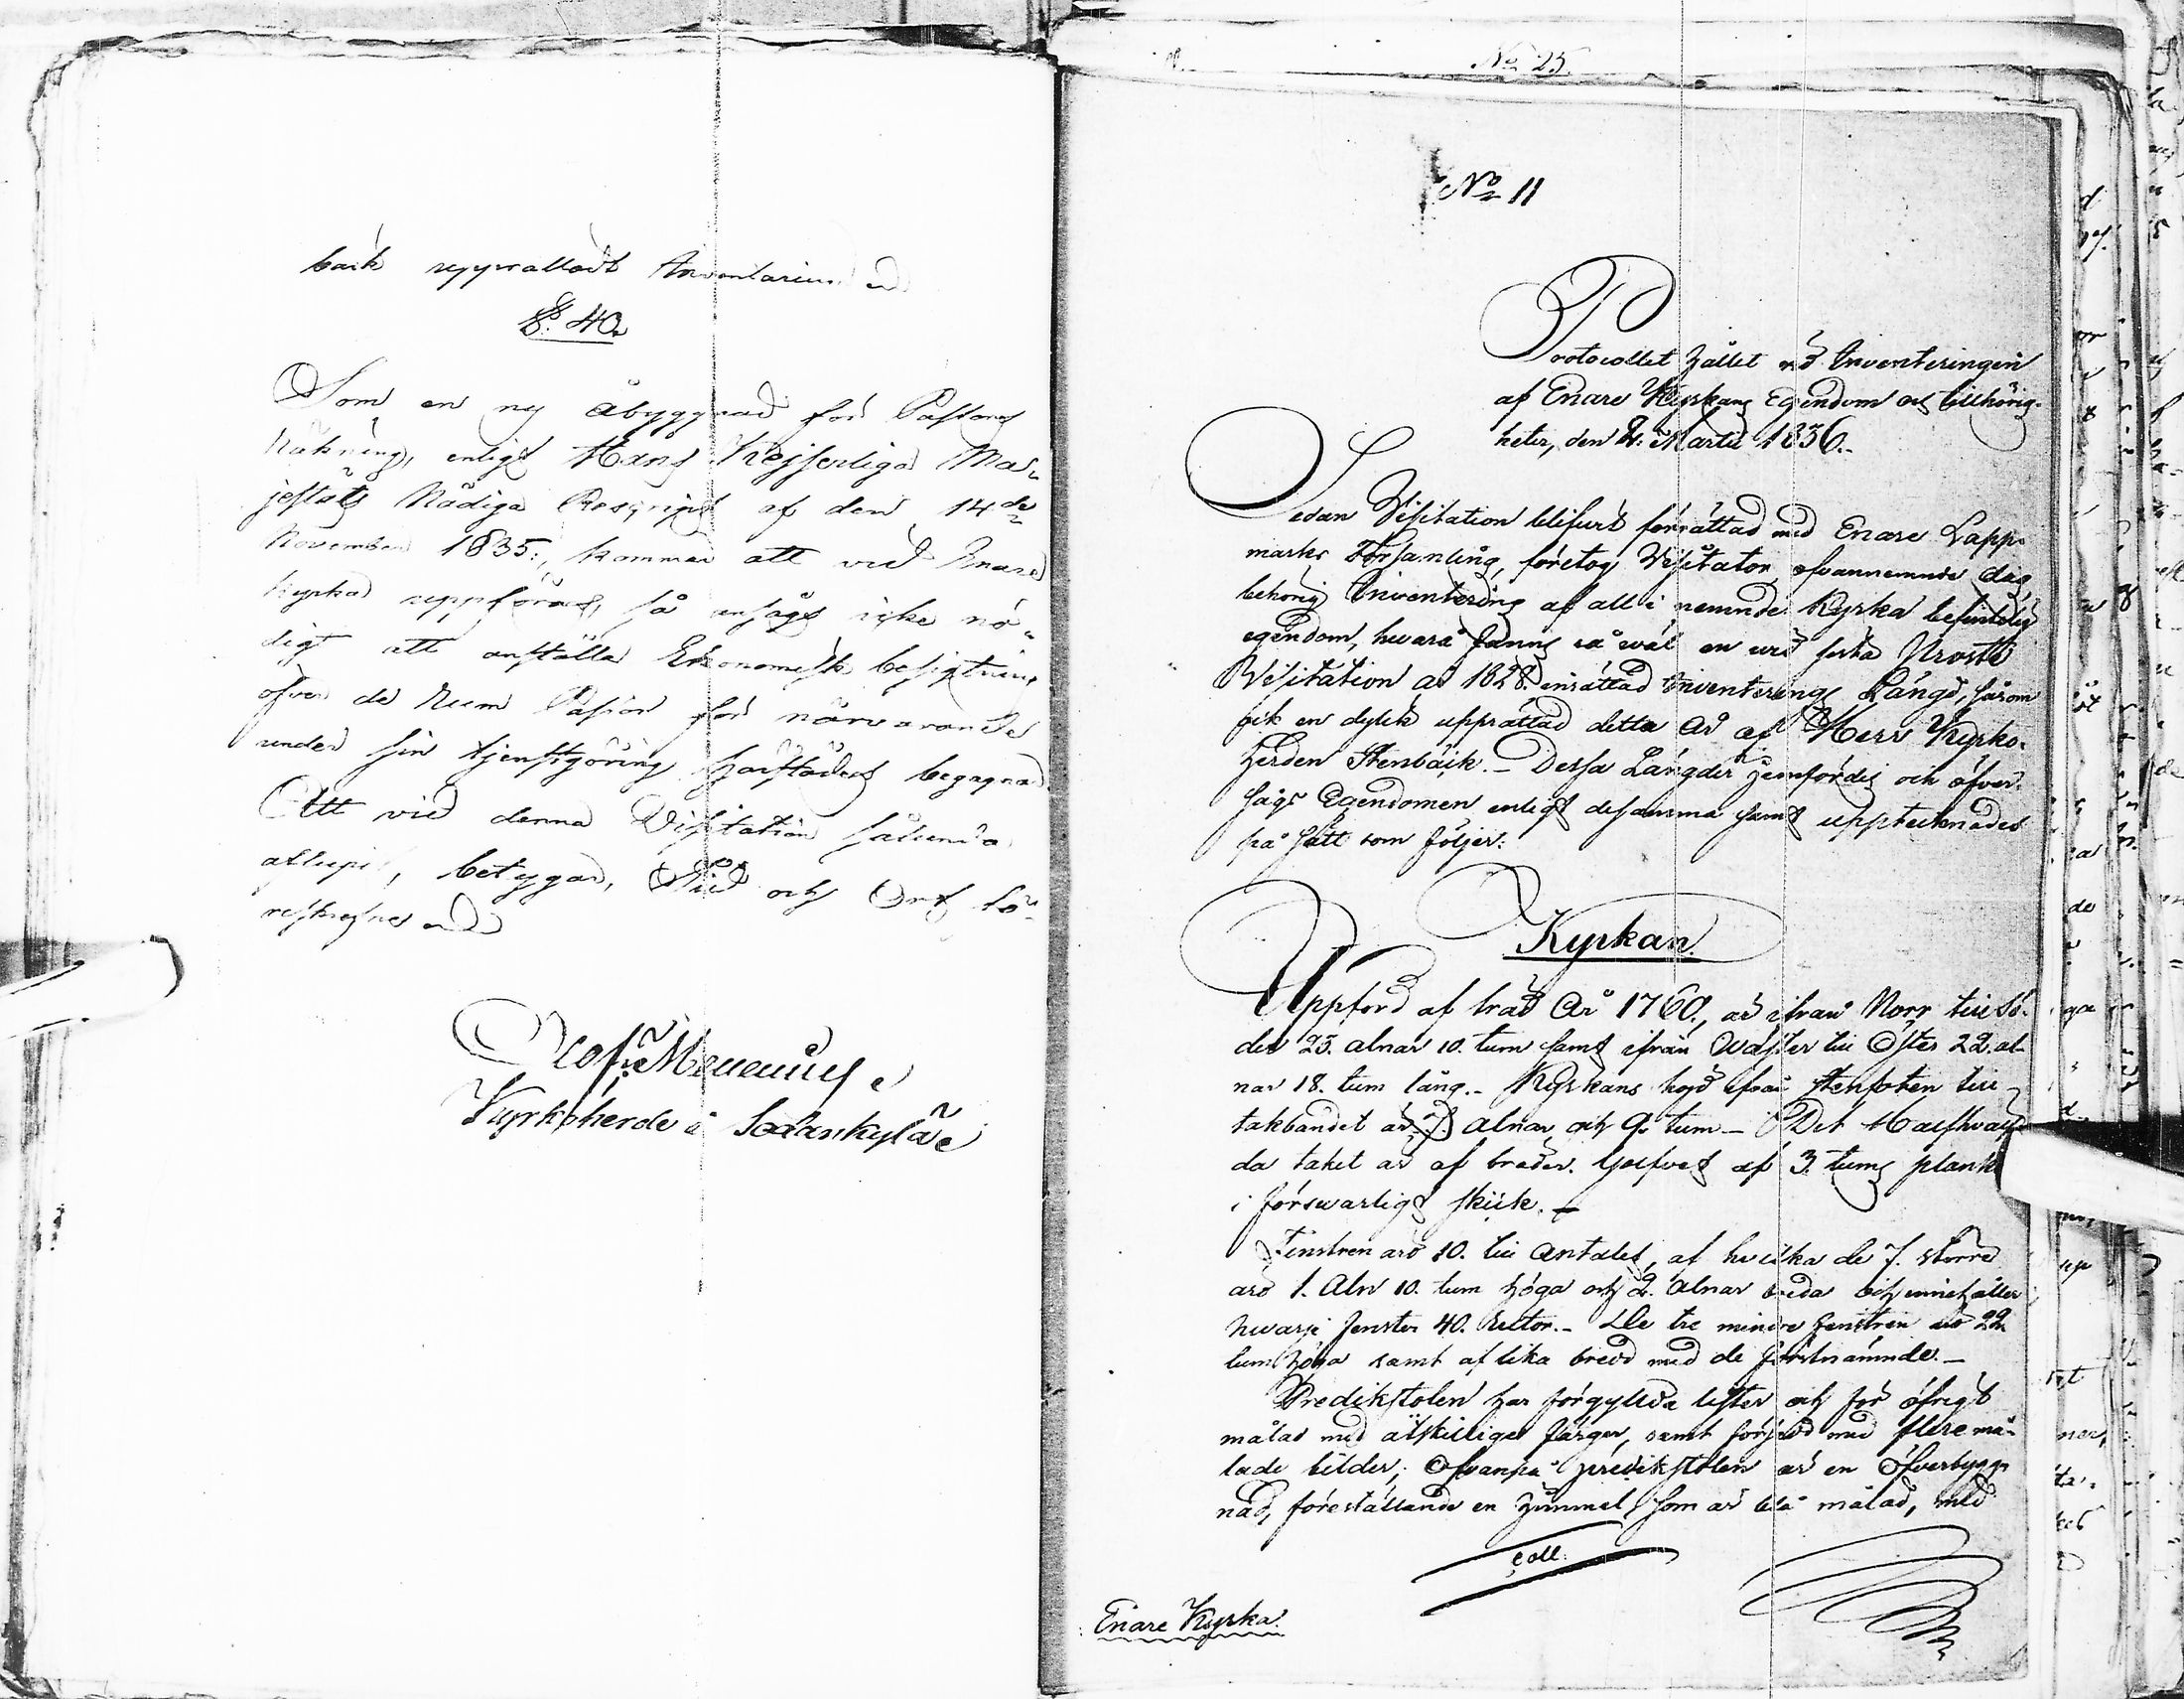 bäck upprättadt Inventarium
§. 40.
Som en ny åbyggnad för Pastors
Räkning, enligt Hans Kejserliga Ma-
jestäts Nådiga Rescript af den 14de
November 1835, kommer att vid Enare
kyrka uppföras, så ansågs icke nö-
digt att anställa Ekonomisk besigtning
öfver de Rum Pastor för närvarande
under sin tjenstgöring härstädes begagnar
Att vid denna Visitation sålunda
aflupit, betygar, Tid och Ort fö-
reskrefne
Kyrkoherde i Sodankylä
No 25.
No 11
Protocollet hållet vid Inventeringen
af Enare Kyrkans Egendom och tillhörig-
heter, den Martii 1836.
Sedan Visitation blifvit förrättad med Enare Lapp-
marks Församling, företog Visitator ofvannemnde dag,
behörig Inventering af all i nemnde Kyrka befintelig
egendom, hwarå fanns så wäl en wid sista Prosti
Visitation år 1828. inrättad Inventerings Längd, såsom
ock en dylik upprättad detta år af Herr Kyrko-
herden Stenbäck. – Dessa Längder jemfördes och öfver-
sågs Egendomen enligt desamma samt upptecknades
på sätt som följer:
Kyrkan
Uppförd af träd år 1760., är ifrån Norr till Sö-
der 23. alnar 10. tum samt ifrån Wäster till Öster 22. al-
nar 18. tum lång. – Kyrkans höjd ifrån stenfoten till
takbandet är alnar och 9. tum – Det Halfhvälf-
da taket är af bräder. Golfvet af 3. tums plank
i försvarligt skick. –
Fenstren äro 10. till antalet, af hvilka de 7. större
äro 1. Aln 10. tum höga och 2. alnar breda och innehåller
hwarje fenster 40. rutor. – De tre mindre fenstren äro 22
tum höga samt af lika bredd med de förstnämnde. –
Predikstolen har förgyllda lister och för öfrigt
målad med åtskilliga färger, samt försedd med flere må-
lade bilder; Ofvanpå predikstolen är en Öfverbygg-
nad, föreställande en himmel som är blå målad, med
coll.
Enare Kyrka.